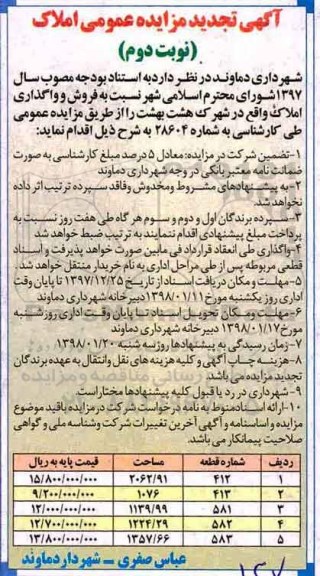 آگهی تجدید مزایده عمومی املاک
(نوبت دوم)
شهرداری دماوند در نظر دارد به استناد بودجه مصوب سال
۱۳۹۷ شورای محترم اسلامی شهر نسبت به فروش و واگذاری
املاک واقع در شهرک هشت بهشت را از طریق مزایده عمومی
طی کارشناسی به شماره ۲۸۶۰۴ به شرح ذیل اقدام نماید:
۱-تضمین شرکت در مزایده: معادل ۵ درصد مبلغ کارشناسی به صورت
ضمانت نامه معتبر بانکی در وجه شهرداری دماوند
۲-به پیشنهادهای مشروط و مخدوش وفاقد سپرده ترتیب اثر داده
نخواهد شد.
۳-سپرده برندگان اول و دوم و سوم هر گاه طی هفت روز نسبت به
پرداخت مبلغ پیشنهادی اقدام ننمایند به ترتیب ضبط خواهد شد
۴-واگذاری طی انعقاد قرارداد فی مابین صورت خواهد پذیرفت و اسناد
قطعی مربوطه پس از طی مراحل اداری به نام خریدار منتقل خواهد شد.
۵-مهلت و مکان دریافت اسناد از تاریخ ۱۳۹۷/۱۲/۲۵ تا پایان وقت
اداری روز یکشنبه مورخ ۱۳۹۸/۰۱/۱۱ دبیرخانه شهرداری دماوند
۶-مهلت و مکان تحویل اسناد تا پایان وقت اداری روز شنبه
مورخ ۱۳۹۸/۰۱/۱۷ دبیرخانه شهرداری دماوند
۷-زمان رسیدگی به پیشنهادها روز سه شنبه ۱۳۹۸/۰۱/۲۰
۸-هزینه چاپ آگهی و کلیه هزینه های نقل وانتقال به عهده برندگان
تجدید مزایده می باشد.
۹-شهرداری در رد یا قبول کلیه پیشنهادها مختار است.
۱۰-ارائه اسناد منوط به نامه درخواست شرکت در مزایده باقید موضوع
مزایده و اساسنامه و آگهی آخرین تغییرات شرکت وشناسه ملی و گواهی
صلاحیت پیمانکار می باشد.
ردیف شماره قطعه مساحت قیمت پایه به ریال
۱ ۴۱۲ ۲۰۶۲/۹۱ ۱۵/۸۰۰/۰۰۰/۰۰۰
۲ ۴۱۳ ۱۰۷۶ ۹/۲۰۰/۰۰۰/۰۰۰
۳ ۵۸۱ ۱۱۳۹/۹۹ ۱۲/۰۰۰/۰۰۰/۰۰۰
۴ ۵۸۲ ۱۲۲۴/۲۹ ۱۲/۷۰۰/۰۰۰/۰۰۰
۵ ۵۸۳ ۱۳۵۷/۶۶ ۱۳/۸۰۰/۰۰۰/۰۰۰
عباس صفری - شهردار دماوند